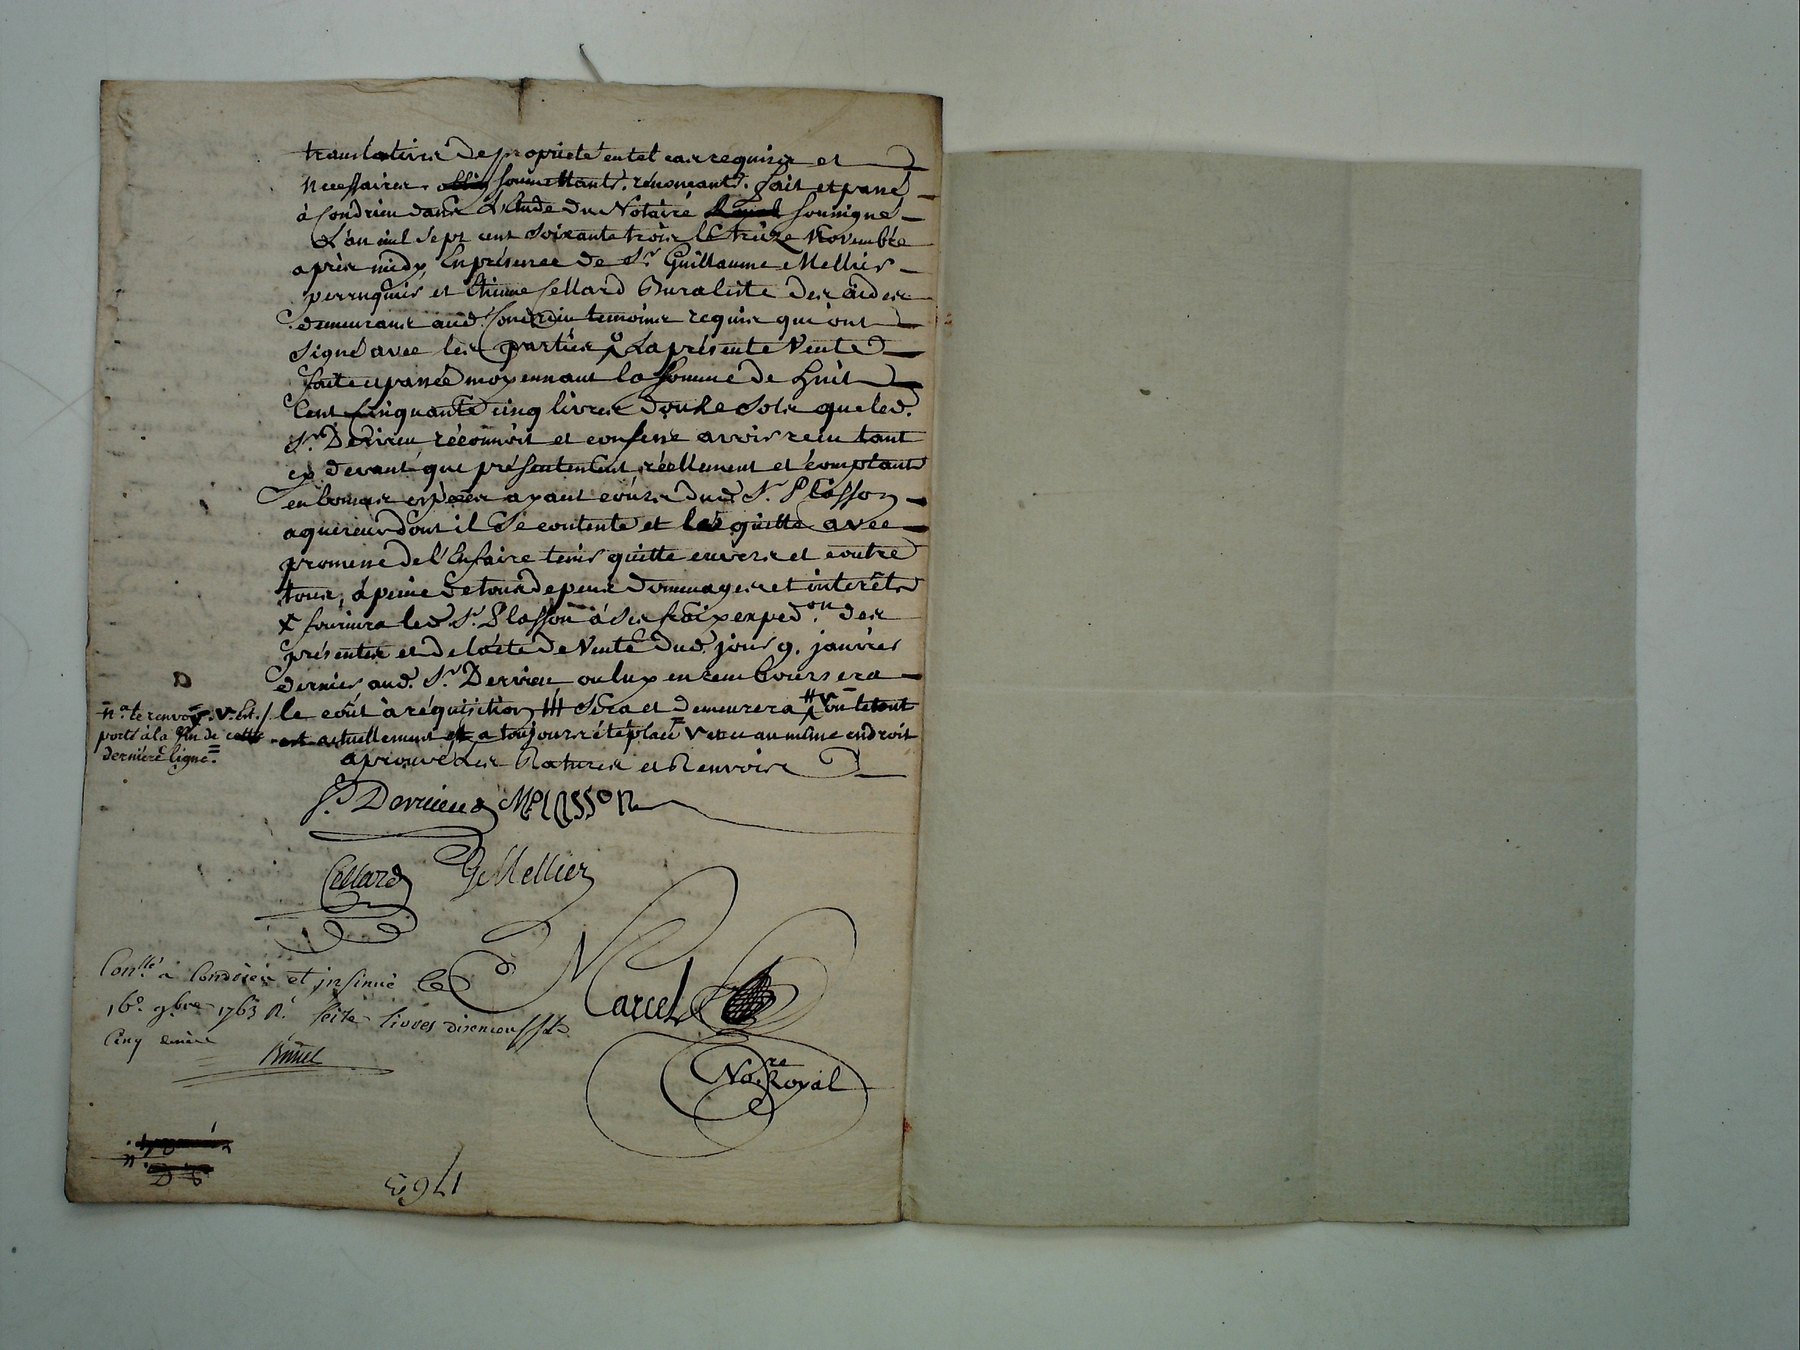 translatives de propriété en tel cas requises et
necessaires. soumettants. renonceants. fait et passé
à Condrieu dans l'Etude du Notaire soussigné
L'an mil Sept cent Soixante trois le treize Novembre
après midy, En présence de Sr. Guillaume Mellier
perruquier et Etienne Cellard Buraliste des aides
demeurans aud. Condrieu temoins requis qui ont
signé avec les parties La présente Vente
faite et passée moyennant la somme de huit
Cent Cinquante cinq livres douze sols que led.
Sr. Derrieu réconnoit et confesse avoir recu tant
cy devant que présentement réellement et comptant
en bonnes espèces ayant cours dud. Sr. Plasson
aquereur dont il se contente et le quitte avec
promesse de l'En faire tenir quitte envers et contre
tous, à peine de tous depens dommages et interêts
fournira led. Sr. Plasson à ses fraix exped.on des
présentes et de l'acte de Vente dud. jour 9. janvier
dernier aud. Sr. Derrieu ou luy en remboursera
le coût à réquisition sera et demeurera ou le tout
est actuellement et a toujours été placé Vercu au même endroit
aprouvé les Ratures et Renvois
na. le renvoy V. Est
porté à la fin de cette
dernière ligne.
Sr. Derrieux MPLASSON
Cellard GMellier
Con.llé à Condrieu et insinué le
16e. 9bre 1763 R. seize livres dix neuf s
Cinq deniers
Marcel
No.re Royal
1763